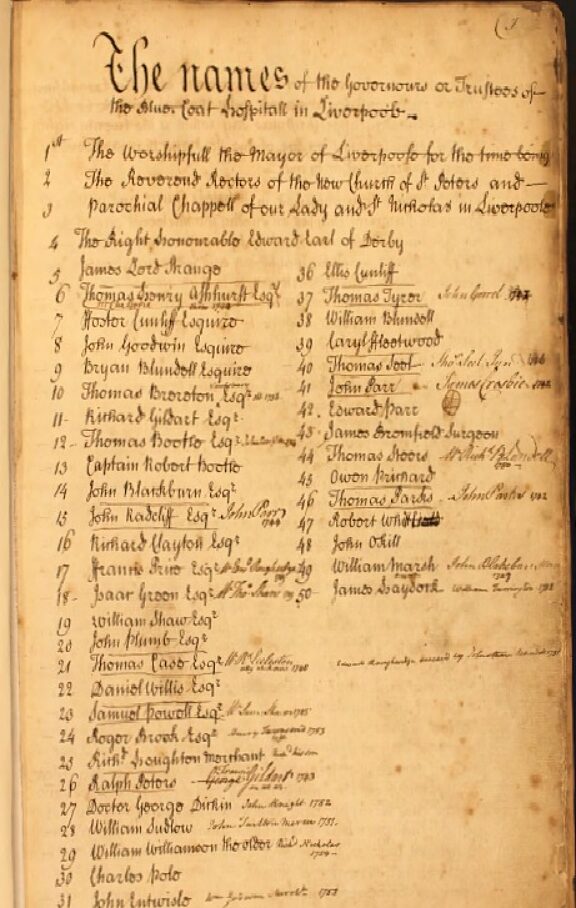 The names of the Governours or Trustees of
the Blue Coat Hospitall in Liverpoole
1st The Worshipfull the Mayor of Liverpoole for the time being
2 The Reverend Rectors of the New Church of St Peters and
3 Parochial Chappell of our Lady and St Nicholas in Liverpoole
4 The Right Honourable Edward Earl of Derby
5 James Lord Strange
6 Thomas Henry Ashhurst Esqr
7 Foster Cunliff Esquire
8 John Goodwin Esquire
9 Bryan Blundell Esquire
10 Thomas Brereton Esqr
11 Richard Gildart Esqr
12 Thomas Bootle Esqr
13 Captain Robert Bootle
14 John Blackburn Esqr
15 John Radcliff Esqr John Parr
16 Richard Clayton Esqr
17 Francis Price Esqr
18 Isaac Green Esqr Mr Thos Shaw
19 William Shaw Esqr
20 John Plumb Esqr
21 Thomas Case Esqr
22 Daniel Willis Esqr
23 Samuel Powell Esqr
24 Roger Brook Esqr 1753
25 Richd Houghton Merchant
26 Ralph Peters George Gildart 1743
27 Doctor George Dickin John Knight 1752
28 William Ludlow John Tarlton
29 William Williamson the older Richd Nicholas
30 Charles Pole
31 John Entwisle
36 Ellis Cunliff
37 Thomas Tyrer
38 William Blundell
39 Caryl Fleetwood
40 Thomas Seel Thos Seel Junr
41 John Parr James Crosbie
42 Edward Parr
43 James Bromfield Surgeon
44 Thomas Steers Mr Richd Blundell
45 Owen Prichard
46 Thomas Parks John Parks
47 Robert
48 John Okill
49 William Marsh John Blackburn
50 James Haydock